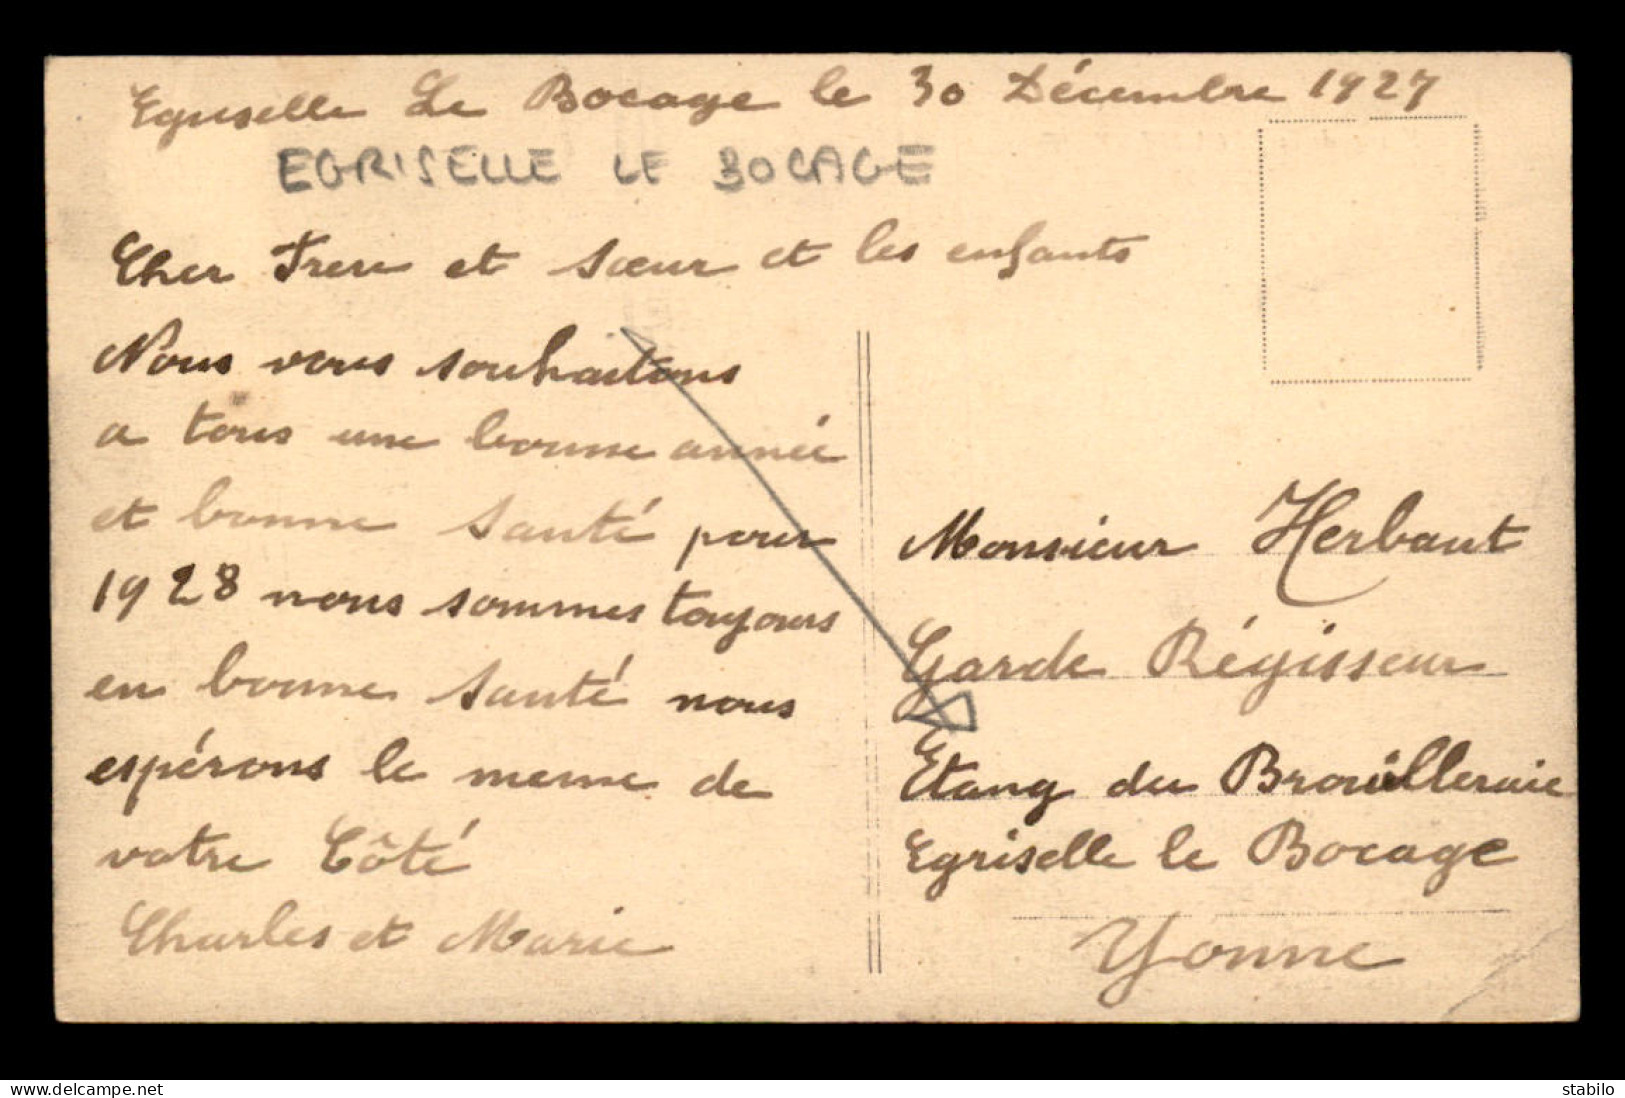 Egriselle Le Bocage le 30 Décembre 1927
EGRISELLE LE BOCAGE
Cher Frere et sœur et les enfants
Nous vous souhaitons
a tous une bonne année
et bonne santé pour
1928 nous sommes toujours
en bonne santé nous
espérons le meme de
votre Côté
Charles et Marie
Monsieur Herbaut
Garde Régisseur
Etang du Brouilleraie
Egriselle le Bocage
Yonne
www.delcampe.net
stabilo